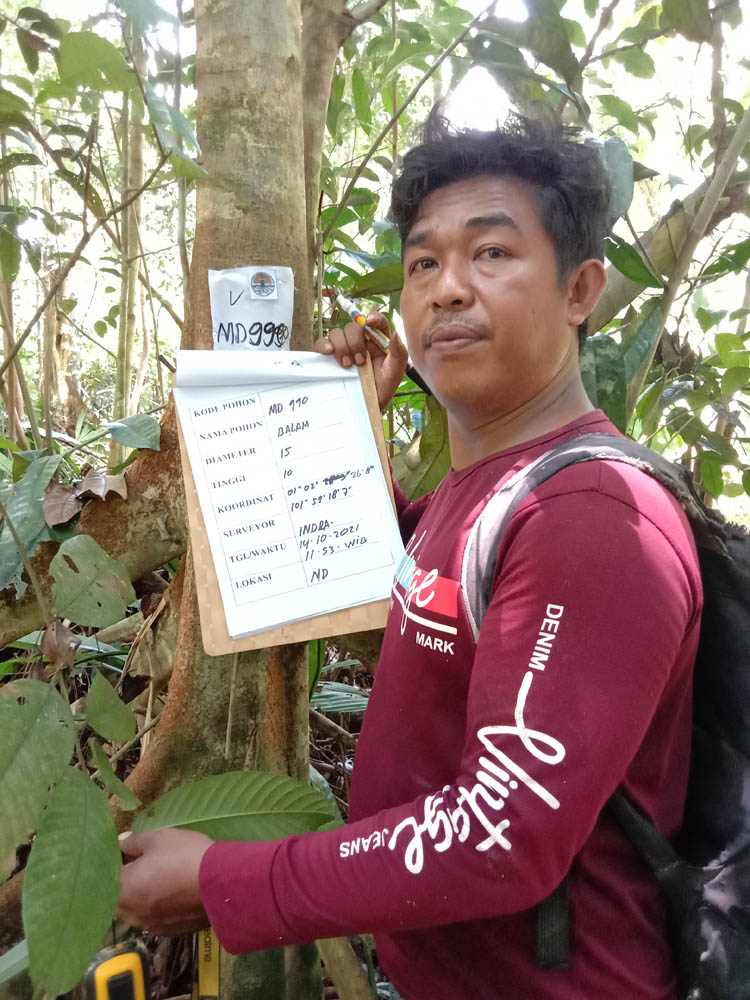 V
MD990
KODE POHON MD 990
NAMA POHON BALAM
DIAMETER 15
TINGGI 10
KOORDINAT 01° 02' 26.8"
101° 59' 18'7
SURVEYOR INDRA.
TGL/WAKTU 14.10.2021
11.53. WIB
LOKASI ND
MARK
DENIM
Vintage
JEANS